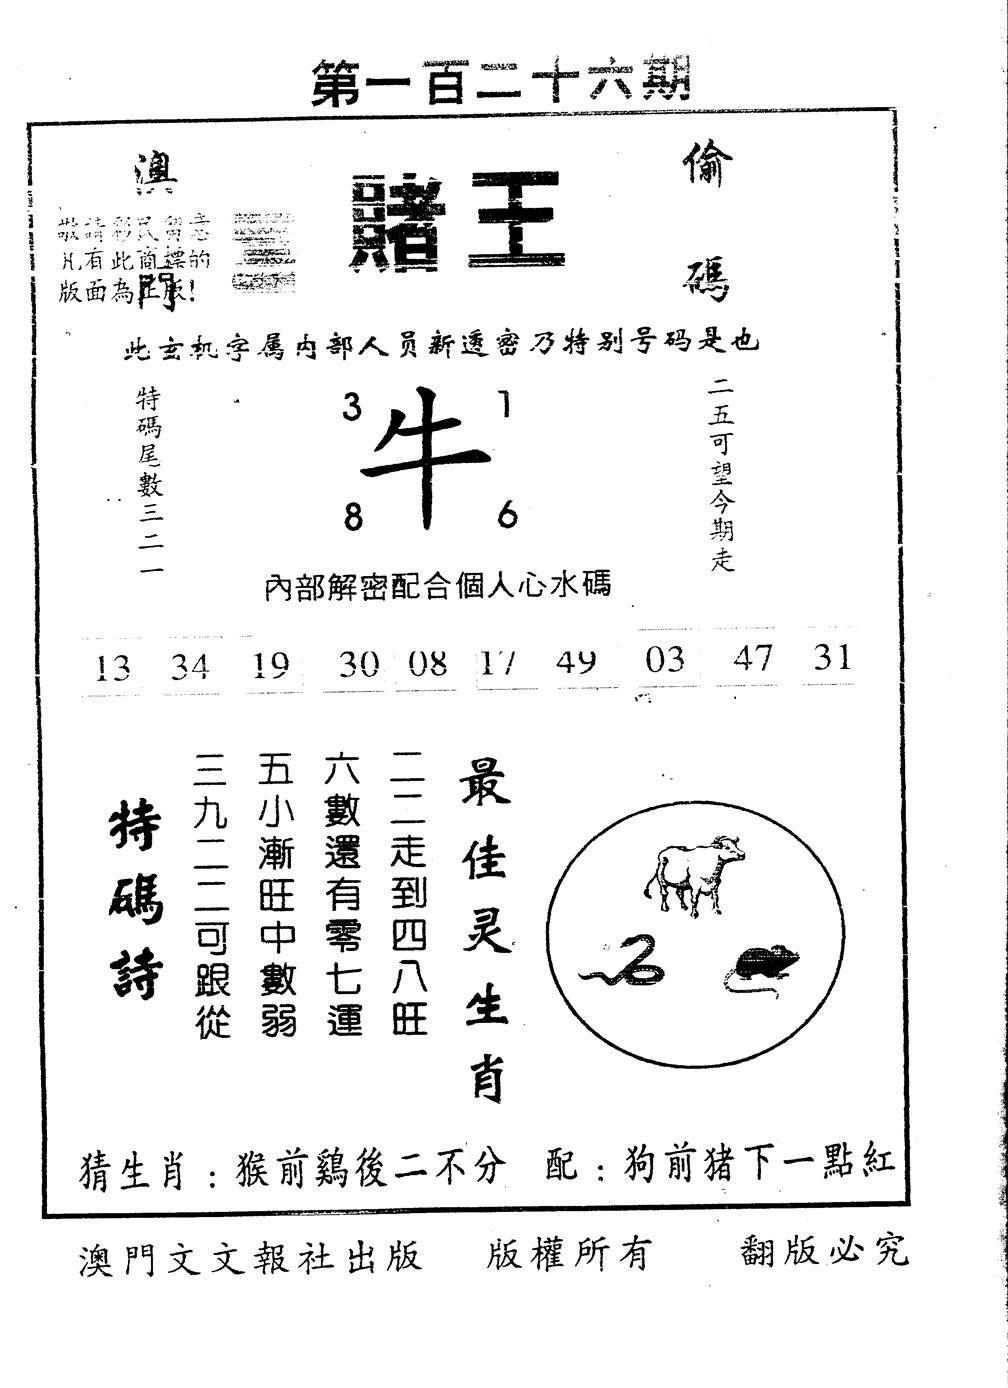 第一百二十六期
澳門
賭王
偷碼
敬請彩民留意
凡有此商標的
版面為正版!
此玄机字属内部人员新透密乃特别号码是也
特碼尾數三二一
3 1
牛
8 6
二五可望今期走
內部解密配合個人心水碼
13 34 19 30 08 17 49 03 47 31
最佳灵生肖
二二走到四八旺
六數還有零七運
五小漸旺中數弱
三九二二可跟從
特碼詩
猜生肖:猴前鷄後二不分 配:狗前猪下一點紅
澳門文文報社出版 版權所有 翻版必究